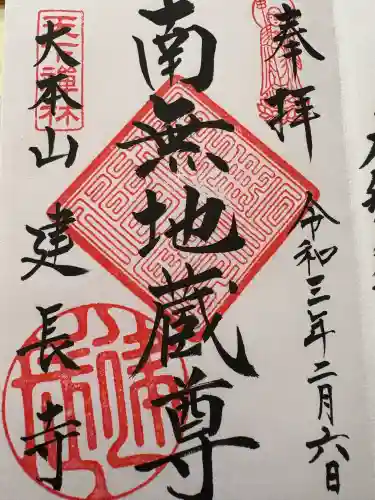 奉拝
令和三年二月六日
南無地蔵尊
大本山建長寺
天下禅林